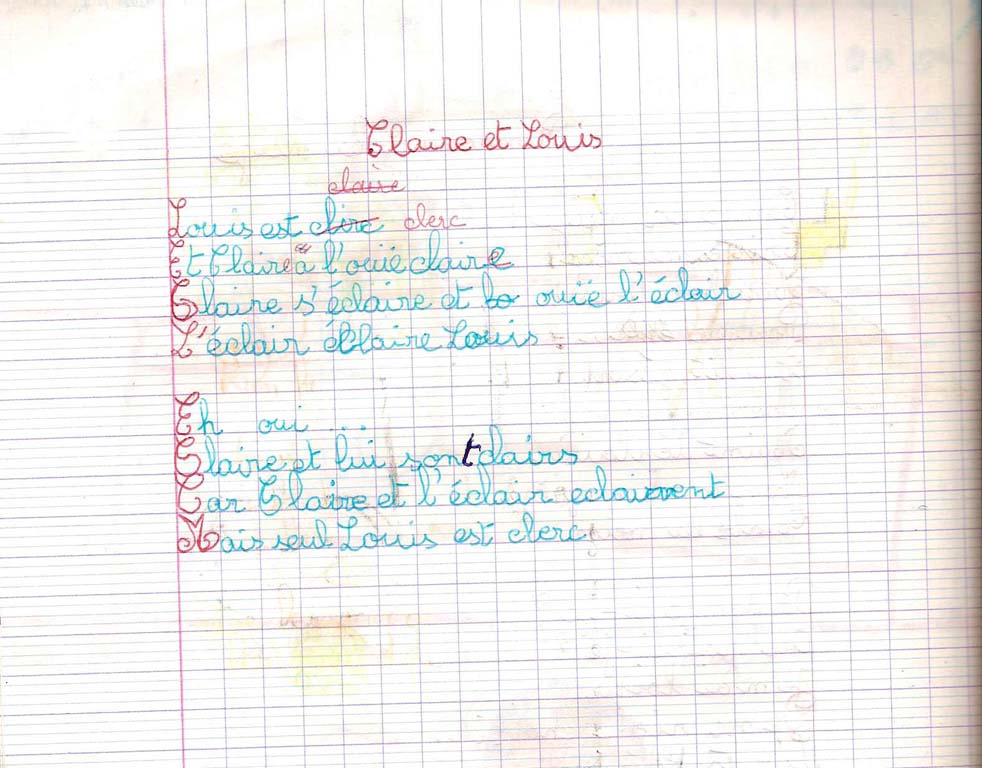 Claire et Louis
claire
Louis est clire clerc
Et Claire à l'ouïe claire
Claire s'éclaire et lo ouïe l'éclair
L'éclair éclaire Louis
Eh oui ...
Claire et lui sont clairs
Car Claire et l'éclair eclairent
Mais seul Louis est clerc